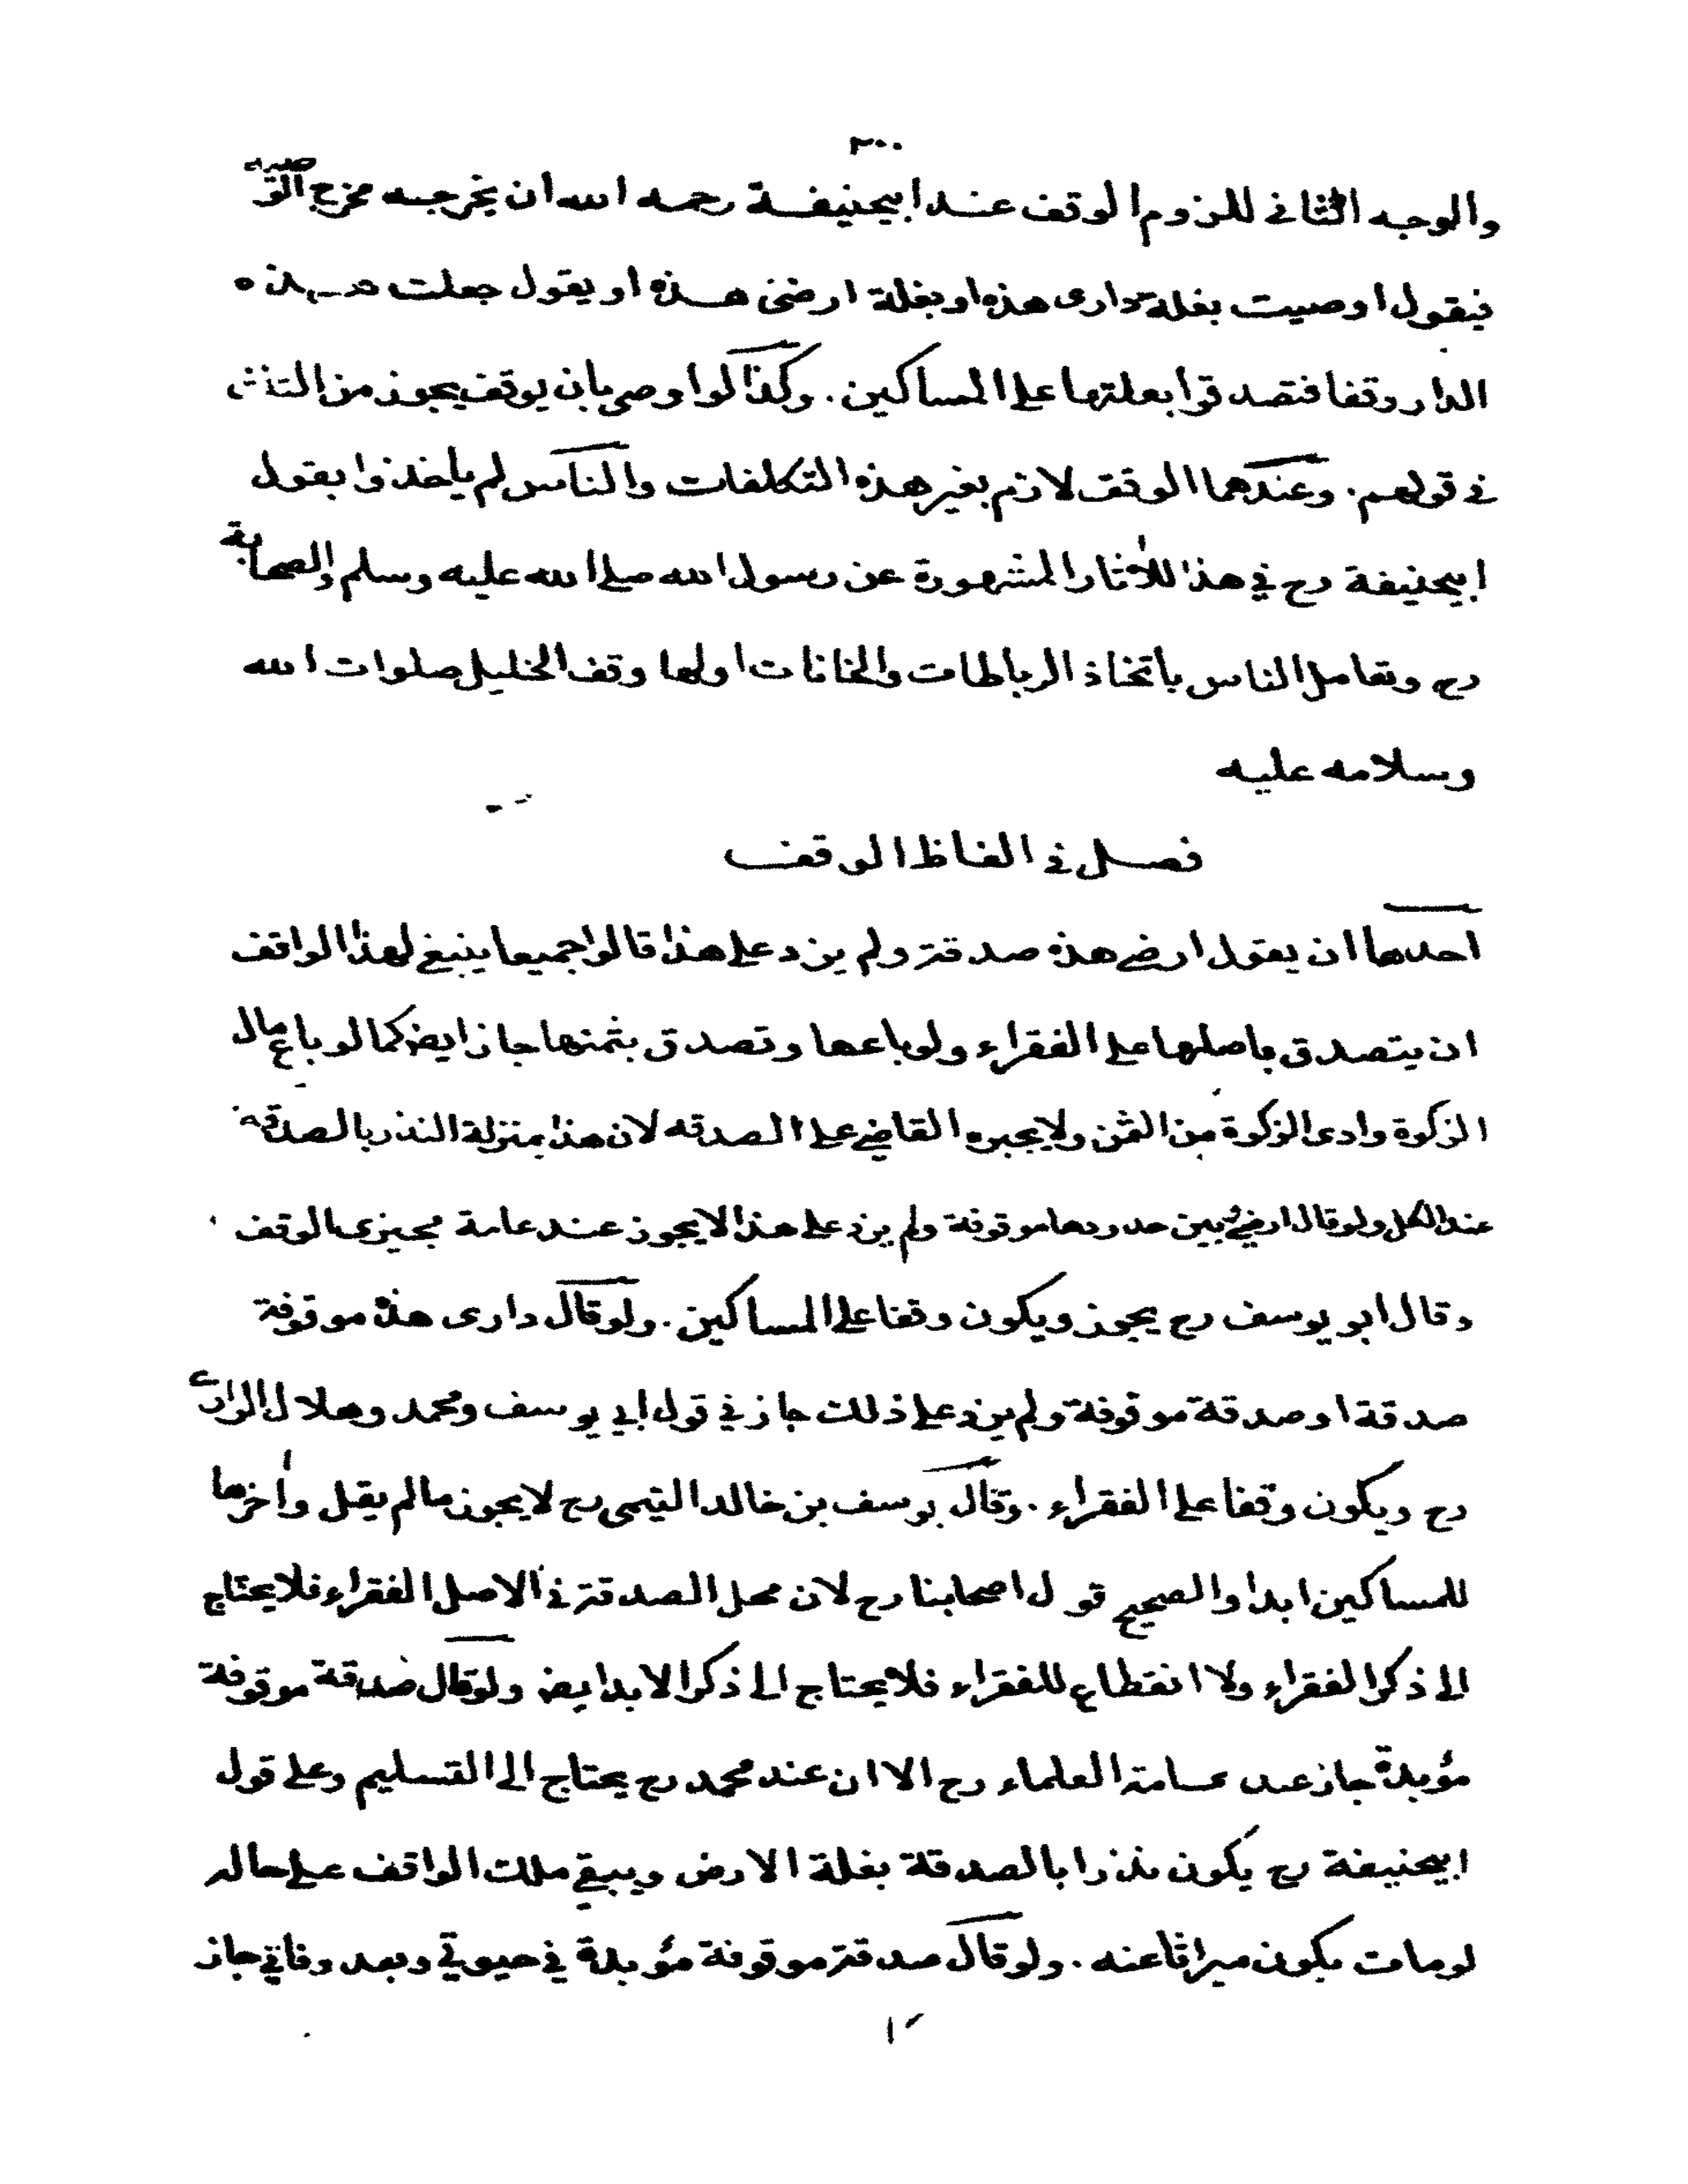 ٣٠٠
والوجه الثانى للزوم الوقف عند ابيحنيفة رحمه الله ان يخرجه مخرج الوصية
فيقول اوصيت بغلة دارى هذه او بغلة ارضى هذه او يقول جعلت هذه
الدار وقفا فتصدقوا بغلتها على المساكين. وكذا لو اوصى بان يوقف يجوز من الثلث
فى قولهم. وعندهما الوقف لازم بغير هذه التكلفات والناس لم يأخذوا بقول
ابيحنيفة رح فى هذا للأثار المشهورة عن رسول الله صلى الله عليه وسلم والصحابة
رح وتعامل الناس باتخاذ الرباطات والخانات اولها وقف الخليل صلوات الله
وسلامه عليه
فصل فى الفاظ الوقف
احدها ان يقول ارضى هذه صدقة ولم يزد على هذا قالوا جميعا ينبغى لهذا الواقف
ان يتصدق باصلها على الفقراء ولو باعها وتصدق بثمنها جاز ايضا كما لو باع مال
الزكوة وادى الزكوة من الثمن ولا يجبره القاضى على الصدقه لان هذا بمنزلة النذر بالصدقة
عند الكل ولو قال ارضى بين حدودها موقوفة ولم يزد على هذا لا يجوز عند عامة مجيزى الوقف
وقال ابو يوسف رح يجوز ويكون وقفا على المساكين. ولو قال دارى هذه موقوفة
صدقة او صدقة موقوفة ولم يزد على ذلك جاز فى قول ابى يوسف ومحمد وهلال الرازى
رح ويكون وقفا على الفقراء. وقال يوسف بن خالد التيمى رح لا يجوز ما لم يقل وأخرها
للمساكين ابدا والصحيح قول اصحابنا رح لان محل الصدقة فى الاصل الفقراء فلا يحتاج
الى ذكر الفقراء ولا انقطاع للفقراء فلا يحتاج الى ذكر الابد ايضا ولو قال صدقة موقوفة
مؤبدة جاز عند عامة العلماء رح الا ان عند محمد رح يحتاج الى التسليم وعلى قول
ابيحنيفة رح يكون نذرا بالصدقة بغلة الارض ويبقى ملك الواقف على حاله
لو مات يكون ميراثا عنه. ولو قال صدقة موقوفة مؤبدة فى حيوتى وبعد وفاتى جاز